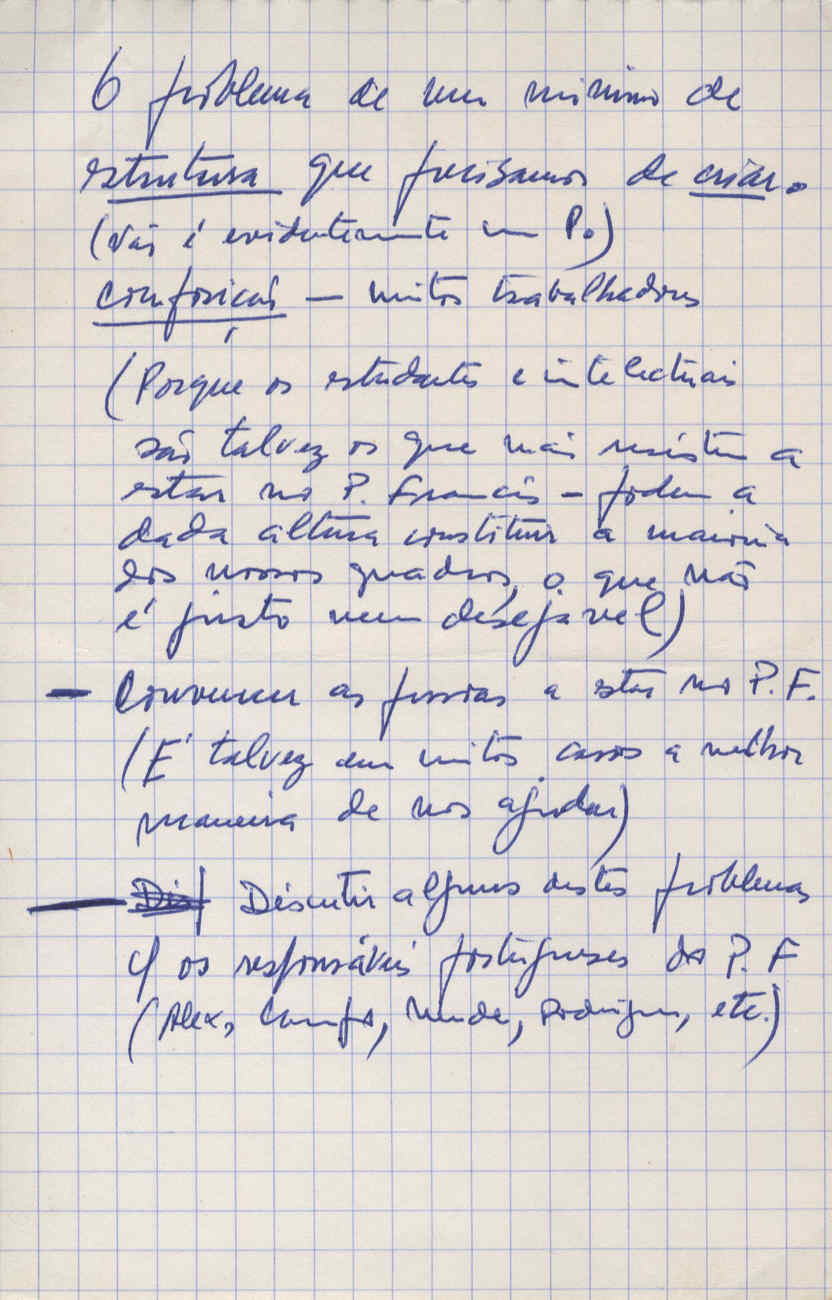 O problema de um mínimo de
estrutura que precisamos de criar.
(Não é evidentemente um P.)
Composição — muitos trabalhadores
(Porquê os estudantes e intelectuais
são talvez os que mais resistem a
estar no P. Francês - podem a
dada altura constituir a maioria
dos nossos quadros, o que não
é justo nem desejável)
— Convencer as pessoas a estar no P.F.
(É talvez em muitos casos a melhor
maneira de nos ajudar)
— Dis Discutir alguns destes problemas
c/ os responsáveis portugueses do P.F
(Alex, Rodrigues, etc.)